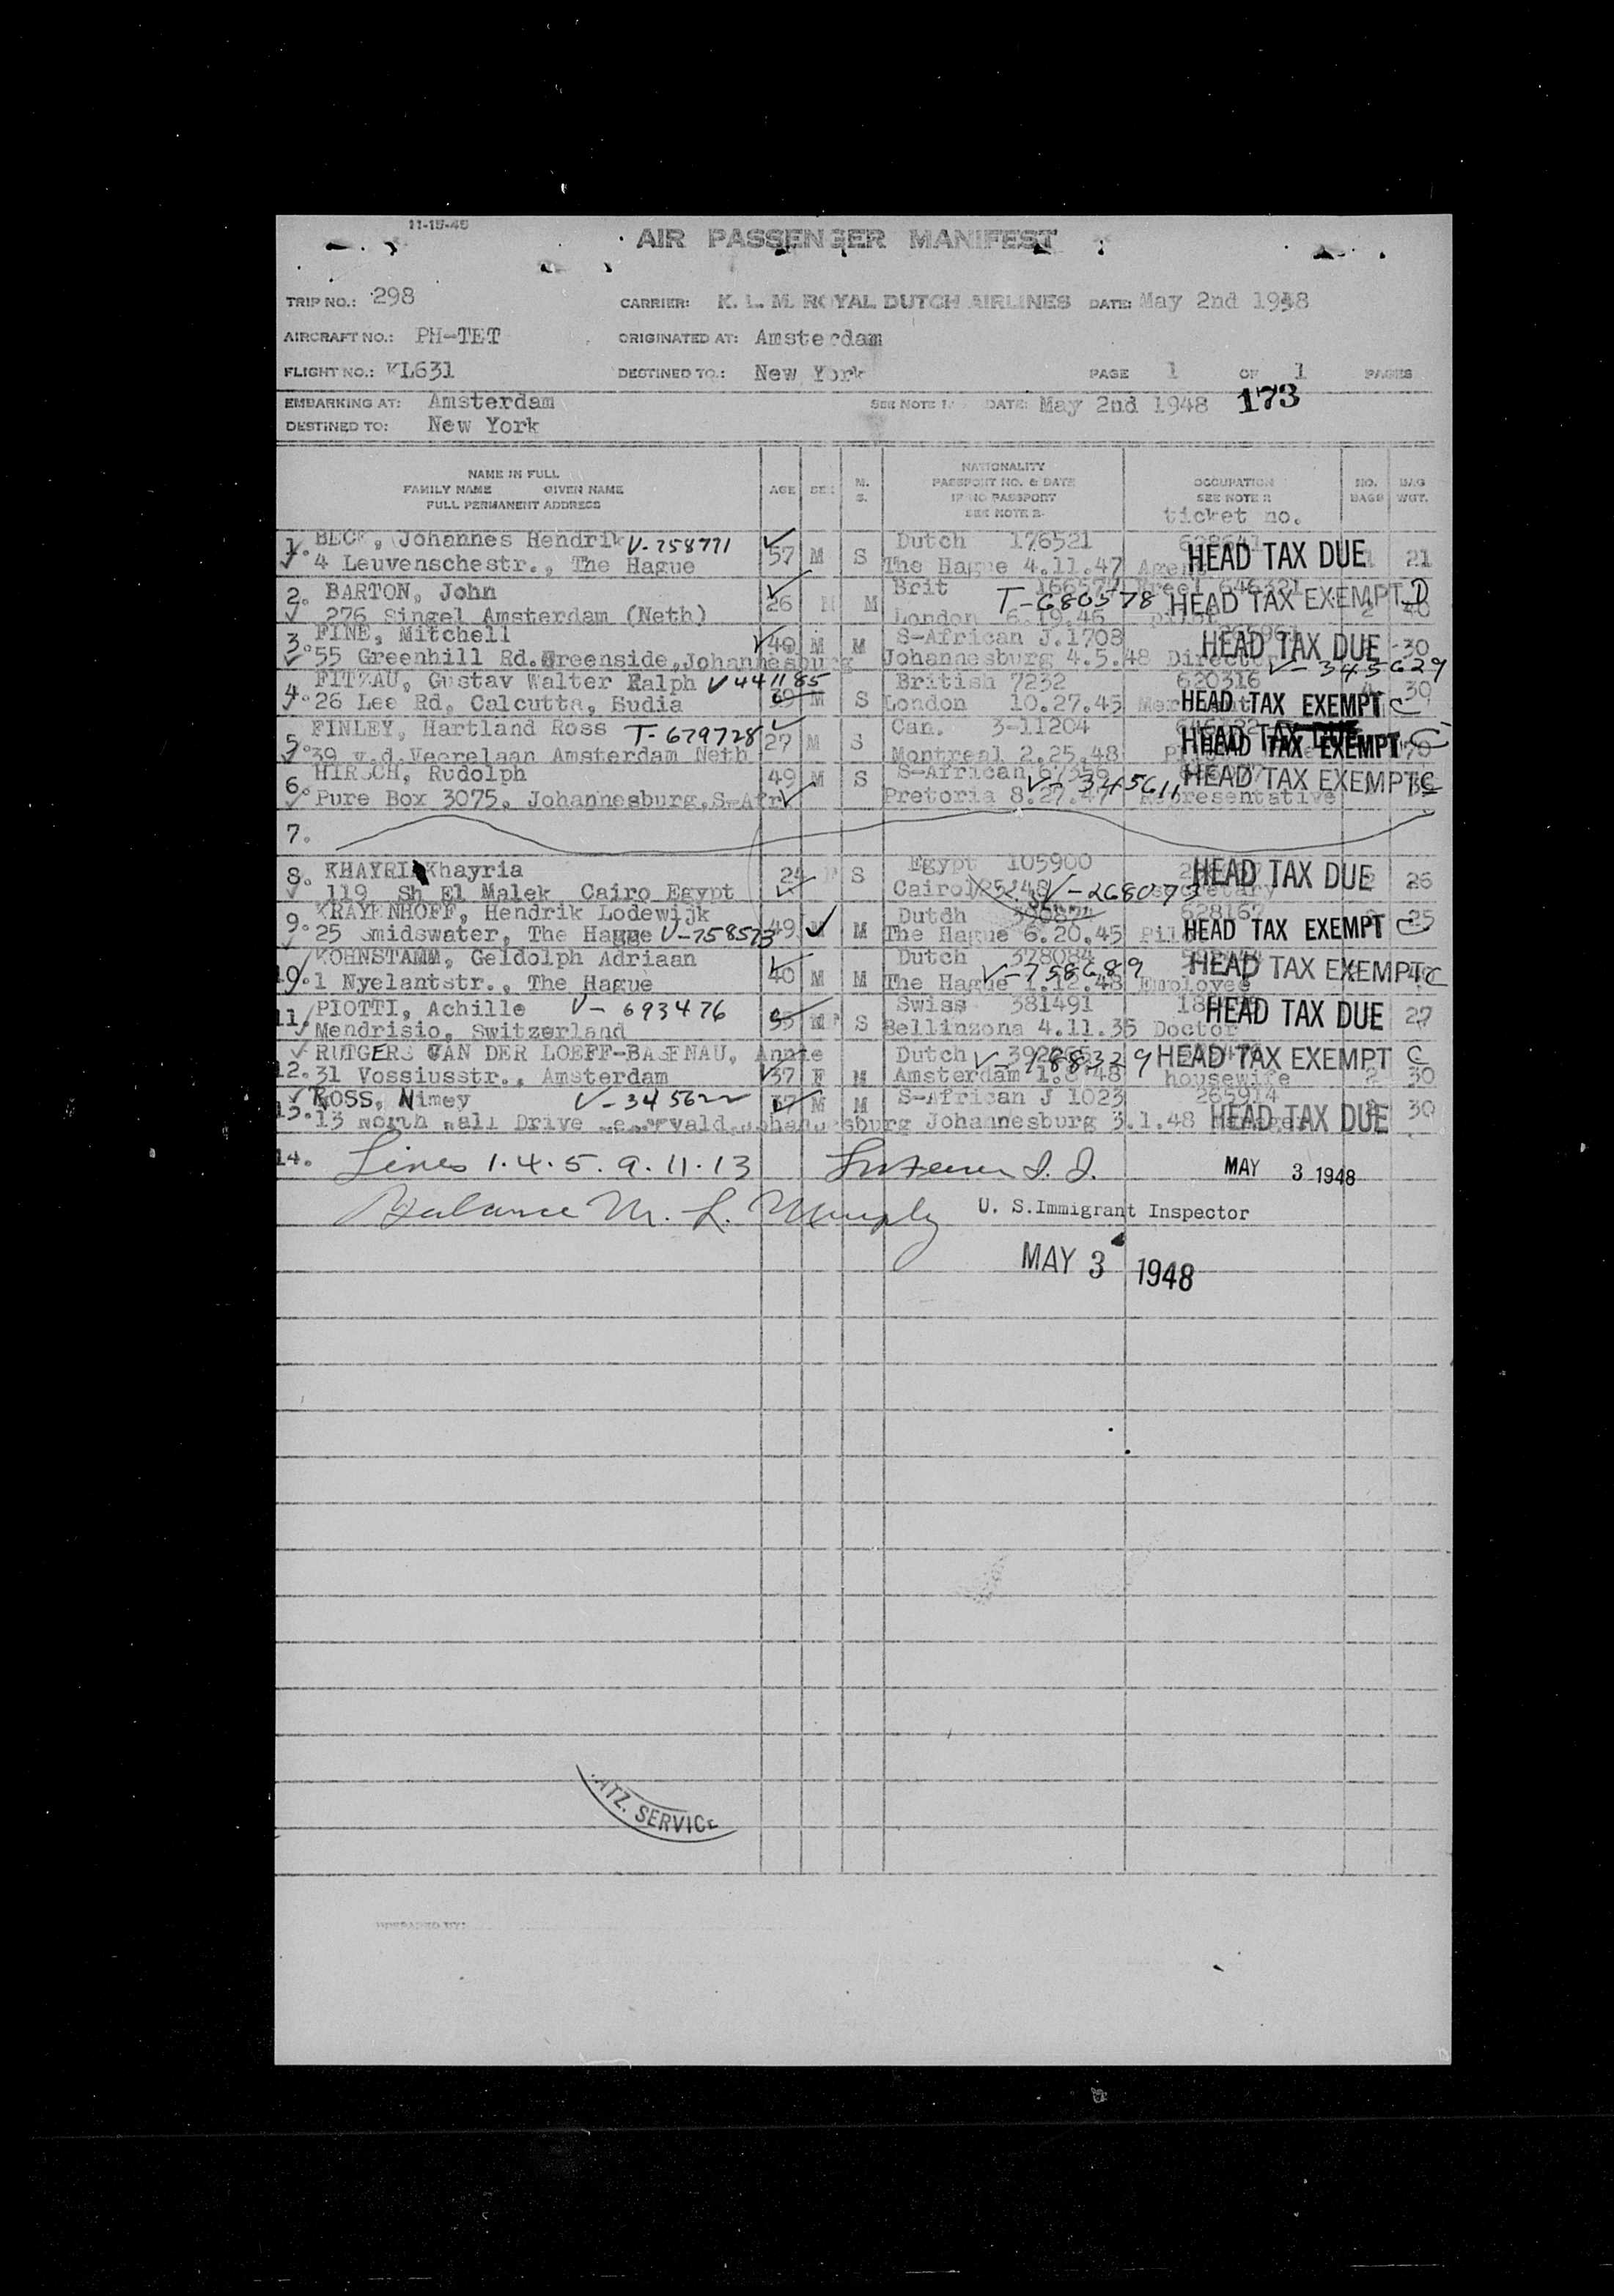 11-15-45
AIR PASSENGER MANIFEST
TRIP NO.: 298 CARRIER: K. L. M. ROYAL DUTCH AIRLINES DATE: May 2nd 1948
AIRCRAFT NO.: PH-TET ORIGINATED AT: Amsterdam
FLIGHT NO.: KL631 DESTINED TO.: New York PAGE 1 OF 1 PAGES
173
EMBARKING AT: Amsterdam SEE NOTE 1. DATE: May 2nd 1948
DESTINED TO: New York
NAME IN FULL
FAMILY NAME GIVEN NAME
FULL PERMANENT ADDRESS
AGE SEX M. S.
NATIONALITY
PASSPORT NO. & DATE
IF NO PASSPORT
SEE NOTE 2.
OCCUPATION
SEE NOTE 2
ticket no.
NO. BAGS BAG WGT.
1. BECK, Johannes Hendrik V-758771 57 M S Dutch 176521 HEAD TAX DUE 21
4 Leuvenschestr., The Hague The Hague 4.11.47 Agent
2. BARTON, John 26 M M Brit T-680578 646321 HEAD TAX EXEMPT D
276 Singel Amsterdam (Neth) London 6.19.46 pilot 2 40
3. FINE, Mitchell 40 M M S-African J.1708 HEAD TAX DUE 30
55 Greenhill Rd. Greenside, Johannesburg Johannesburg 4.5.48 Director V-345629
4. FITZAU, Gustav Walter Ralph V441185 39 M S British 7232 620316 30
26 Lee Rd, Calcutta, Sudia London 10.27.45 HEAD TAX EXEMPT C
5. FINLEY, Hartland Ross T-679728 27 M S Can. 3-11204 HEAD TAX DUE
39 v.d.Veerelaan Amsterdam Neth Montreal 2.25.48 HEAD TAX EXEMPT C
6. HIRSCH, Rudolph 49 M S S-African V-345611 HEAD TAX EXEMPT C
Pure Box 3075, Johannesburg, S-Afr Pretoria 8.27.47 Representative
7.
8. KHAYRI Khayria 24 F S Egypt 105900 HEAD TAX DUE 2 26
119 Sh El Malek Cairo Egypt Cairo V-268073 secretary
9. KRAYENHOFF, Hendrik Lodewijk 49 M M Dutdh 390874 628167 25
25 Smidswater, The Hague V-758573 The Hague 6.20.45 Pilot HEAD TAX EXEMPT C
10. KOHNSTAMM, Geldolph Adriaan 40 M M Dutch 378084 HEAD TAX EXEMPT C
1 Nyelantstr., The Hague The Hague 1.12.48 V-758689 Employee
11. PIOTTI, Achille V-693476 35 M S Swiss 381491 HEAD TAX DUE 27
Mendrisio, Switzerland Bellinzona 4.11.35 Doctor
12. RUTGERS VAN DER LOEFF-BASENAU, Annie 37 F M Dutch V-788329 HEAD TAX EXEMPT C
31 Vossiusstr., Amsterdam Amsterdam 1.8.48 housewife 2 30
13. ROSS, Nimey V-345622 37 M M S-African J 1023 265914 30
13 North Wall Drive Johannesburg Johannesburg 3.1.48 HEAD TAX DUE
14. Lines 1.4.5.9.11.13 I. I. MAY 3 1948
Balance M. L. Murphy U. S. Immigrant Inspector
MAY 3 1948
ATZ. SERVICE
PREPARED BY: